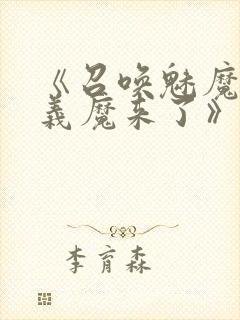 《召唤魅魔
義魔来了》
李育森